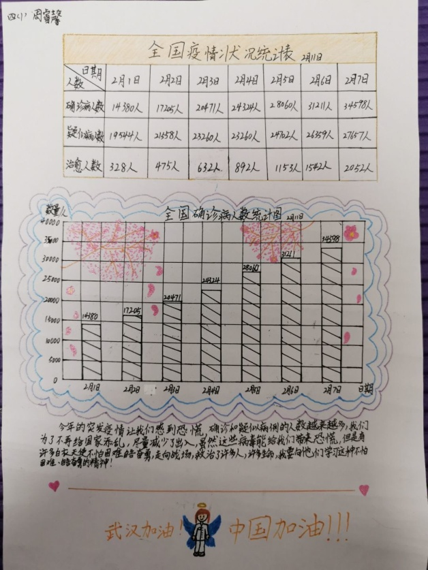 四(1) 周睿馨
全国疫情状况统计表 2月11日
日期 人数 2月1日 2月2日 2月3日 2月4日 2月5日 2月6日 2月7日
确诊病人数 14380人 17205人 20471人 24324人 28060人 31211人 34598人
疑似病人数 19544人 21558人 23260人 23260人 24702人 26359人 27657人
治愈人数 328人 475人 632人 892人 1153人 1542人 2052人
数量/人 全国确诊病人数统计图 2月11日
40000
35000 34598
30000 31211
25000 28060
24324
20000 20471
15000 14380 17205
10000
5000
0
2月1日 2月2日 2月3日 2月4日 2月5日 2月6日 2月7日 日期
今年的突发疫情让我们感到恐慌,确诊和疑似病例的人数越来越多,我们
为了不再给国家添乱,尽量减少了出入,虽然这些病毒能给我们带来恐慌,但是有
许多白衣天使不怕困难
走向战场,救治了许多人,
我要向他们学习这种不怕
困难、的精神!
武汉加油! 中国加油!!!